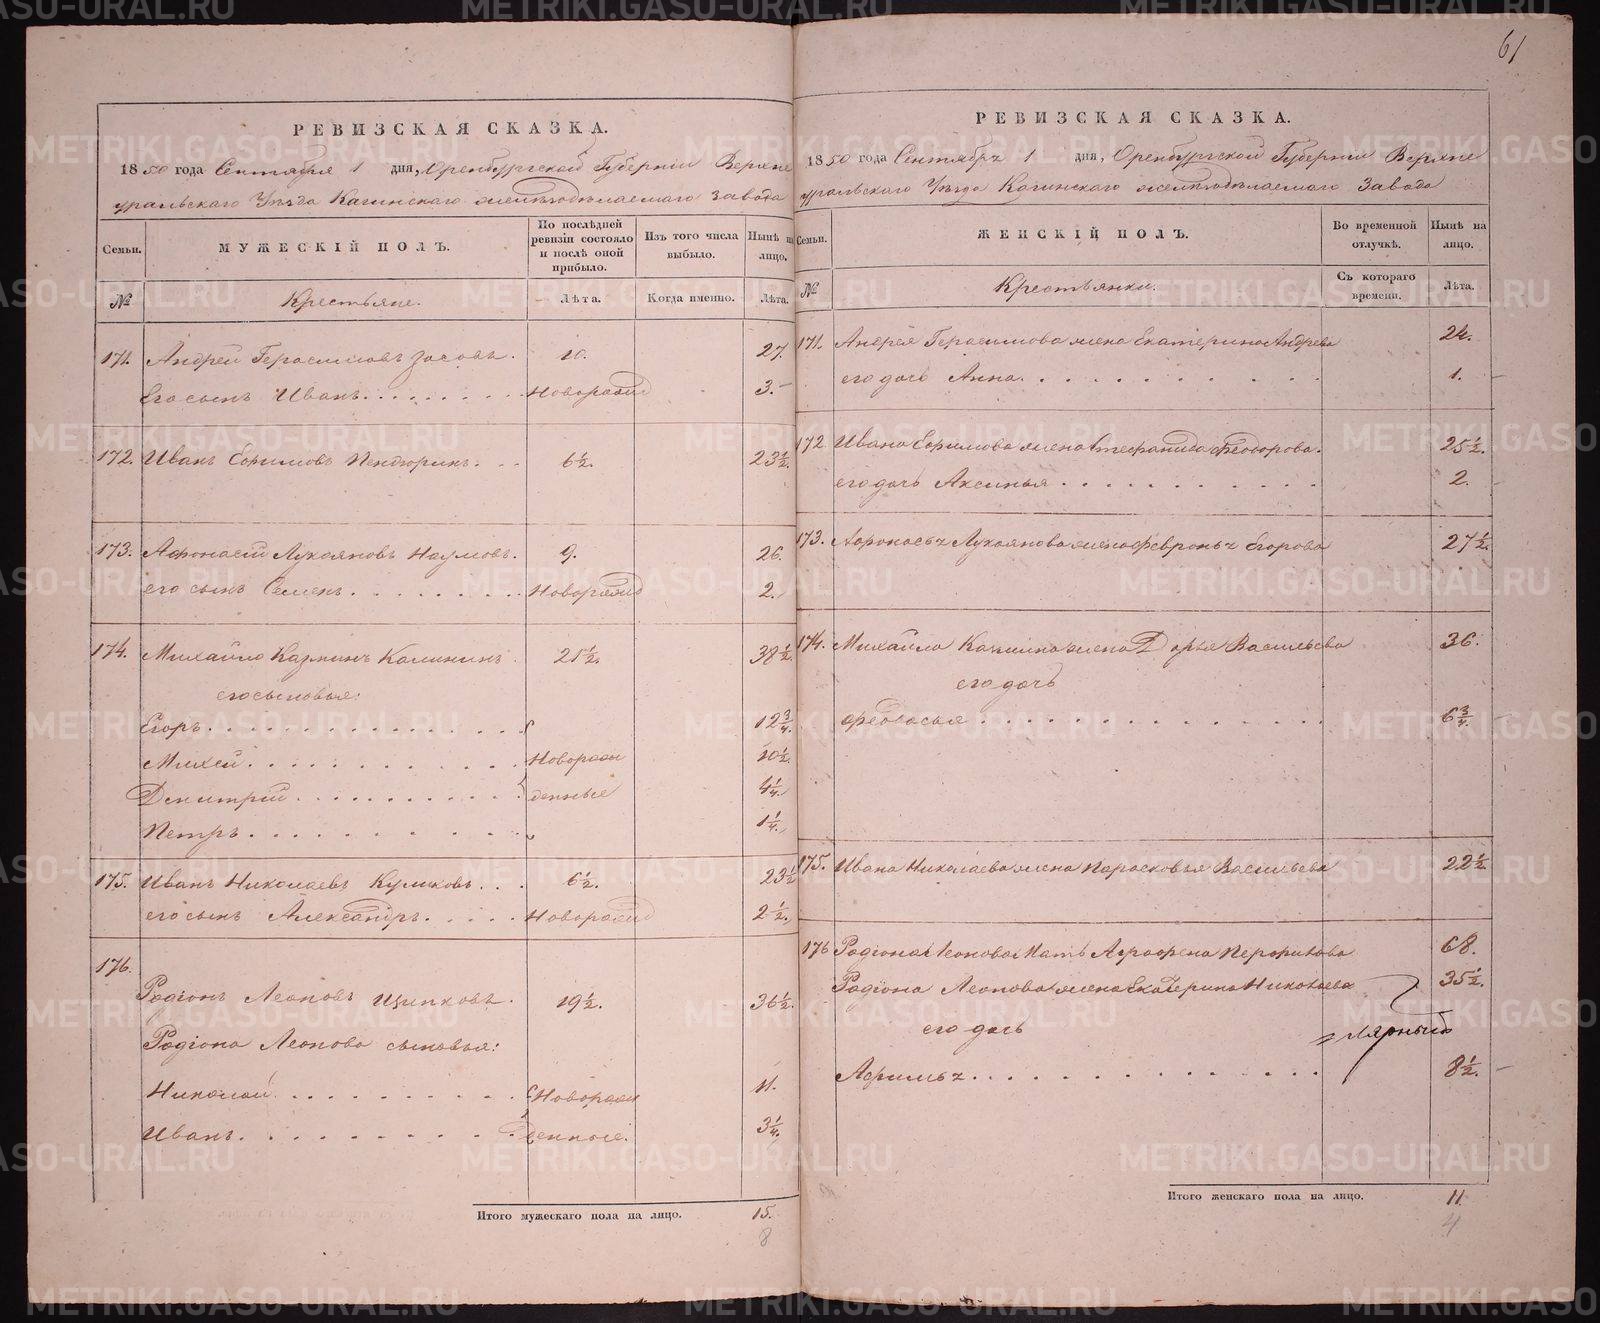 61
РЕВИЗСКАЯ СКАЗКА.
1850 года Сентября 1 дня, Оренбургской Губерніи Верхне
уральскаго Уѣзда Кагинскаго желѣзодѣлаемаго Завода
Семьи.
МУЖЕСКІЙ ПОЛЪ.
По послѣдней
ревизіи состояло
и послѣ оной
прибыло.
Изъ того числа
выбыло.
Нынѣ на
лицо.
№
Крестьяне.
Лѣта.
Когда именно.
Лѣта.
171. Андрей Герасимовъ Зосовъ. 10. 27.
Его сынъ Иванъ. Новорожд 3.
172. Иванъ Ефимовъ Пендюринъ. 6½. 23½.
173. Афонасій Лукояновъ Наумовъ. 9. 26.
его сынъ Семенъ. Новорожд 2.
174. Михайло Карпинъ Калининъ. 21½. 38½.
его сыновья:
Егоръ. 12¾.
Михей. Новорож 10½.
Дмитрій. денные 4¼.
Петръ. 1¼.
175. Иванъ Николаевъ Куликовъ. 6½. 23½
его сынъ Александръ. Новорожд 2½.
176.
Родіонъ Леоновъ Щипковъ. 19½. 36½.
Родіона Леонова сыновья:
Николай. Новорож 11.
Иванъ. денные. 3¼.
Итого мужескаго пола на лицо. 15.
8
РЕВИЗСКАЯ СКАЗКА.
1850 года Сентября 1 дня, Оренбургской Губерніи Верхне
уральскаго Уѣзда Кагинскаго желѣзодѣлаемаго Завода
Семьи.
ЖЕНСКІЙ ПОЛЪ.
Во временной
отлучкѣ.
Нынѣ на
лицо.
№
Крестьянки.
Съ котораго
времени.
Лѣта.
171. Андрея Герасимова жена Екатерина Андреева 24.
его дочь Анна. 1.
172. Ивана Ефимова жена Стефанида Феодорова. 25½.
его дочь Аксинья 2.
173. Афонасья Лукоянова жена Февронья Егорова 27½.
174. Михайла Калинина жена Дарья Васильева 36.
его дочь
Федосья 6¾.
175. Ивана Николаева жена Парасковья Васильева 22½.
176 Родіона Леонова Мать Аграфена Перфилова 68.
Родіона Леонова жена Екатерина Николаева 35½.
его дочь
Афимья. 8½.
Итого женскаго пола на лицо. 11.
4
METRIKI.GASO-URAL.RU